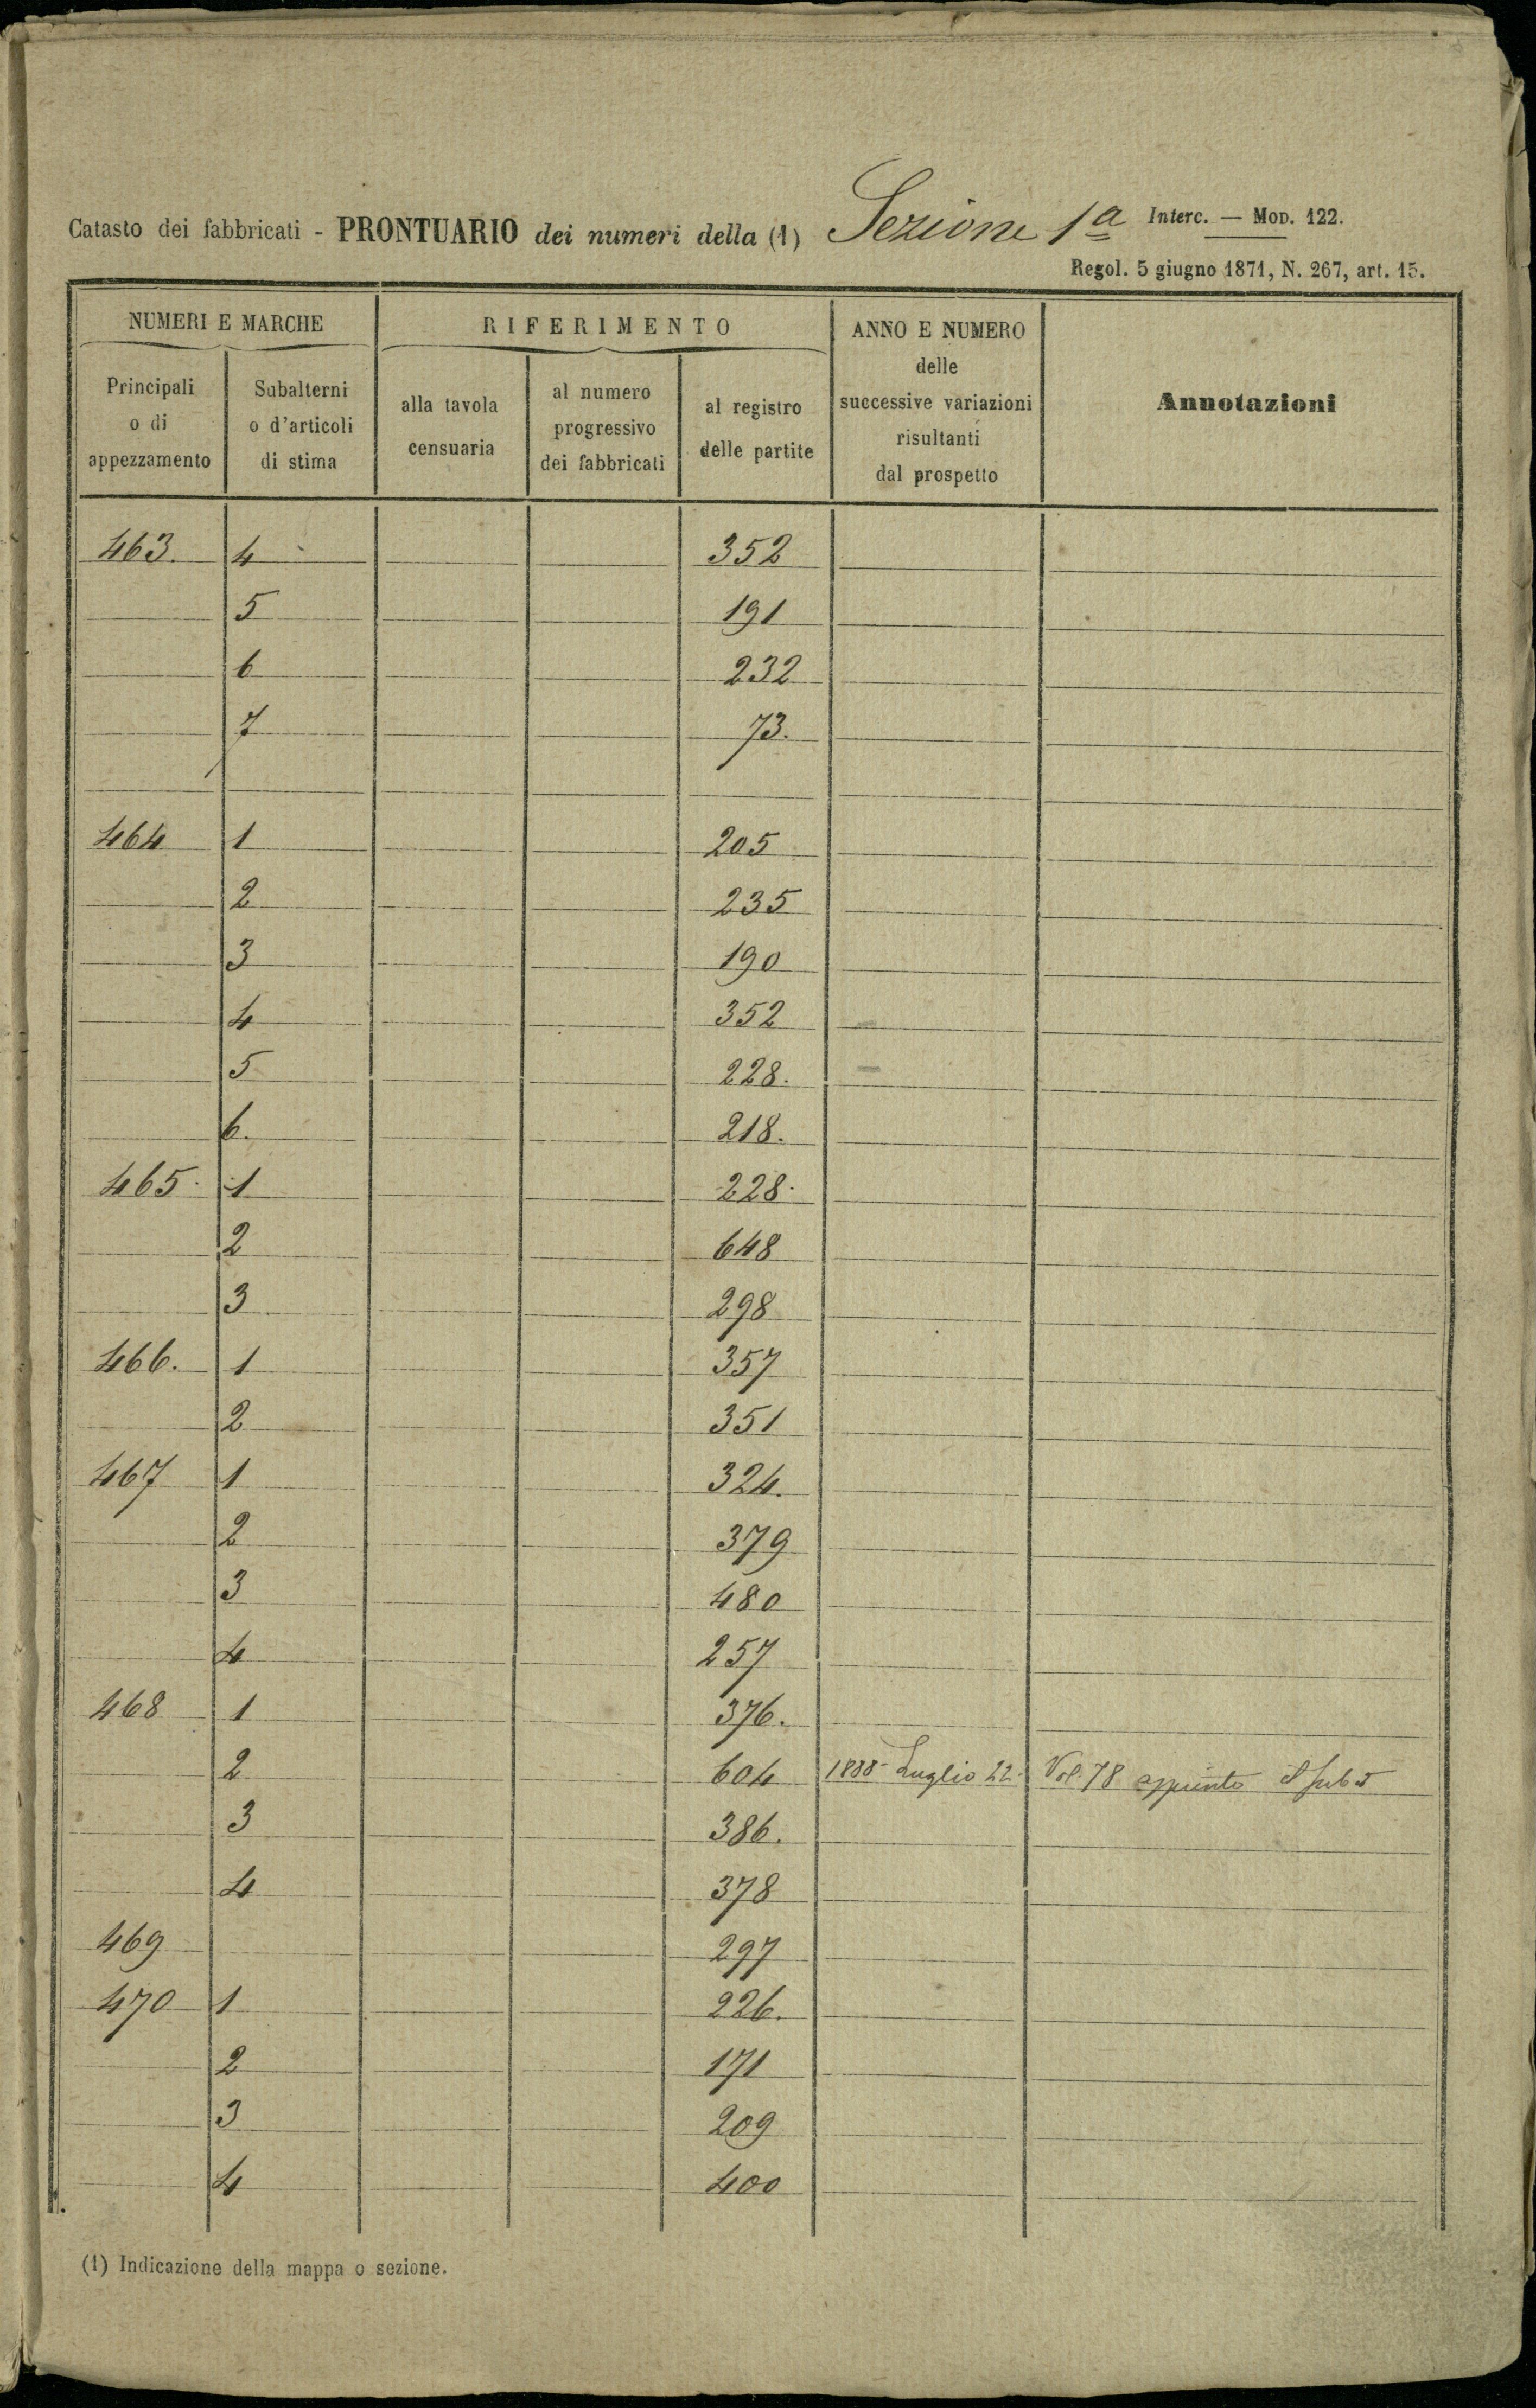 Catasto dei fabbricati - PRONTUARIO dei numeri della (1) Sezione 1ª Interc. — Mod. 122.
Regol. 5 giugno 1871, N. 267, art. 15.
NUMERI E MARCHE RIFERIMENTO ANNO E NUMERO delle successive variazioni risultanti dal prospetto Annotazioni
Principali o di appezzamento Subalterni o d'articoli di stima alla tavola censuaria al numero progressivo dei fabbricati al registro delle partite
463. 4 352
5 191
6 232
7 73.
464 1 205
2 235
3 190
4 352
5 228.
6. 218.
465. 1 228.
2 648
3 298
466. 1 357
2 351
467 1 324.
2 379
3 480
4 257
468 1 376.
2 604 1888 Luglio 22. Vol. 78
3 386.
4 378
469 297
470 1 226.
2 171
3 209
4 400
(1) Indicazione della mappa o sezione.